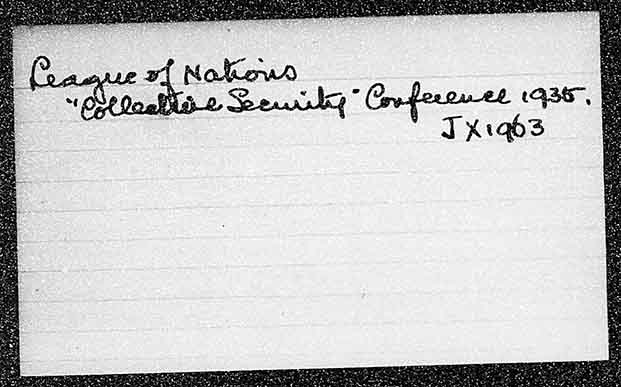 League of Nations
"Collective Security" Conference 1935.
JX1963